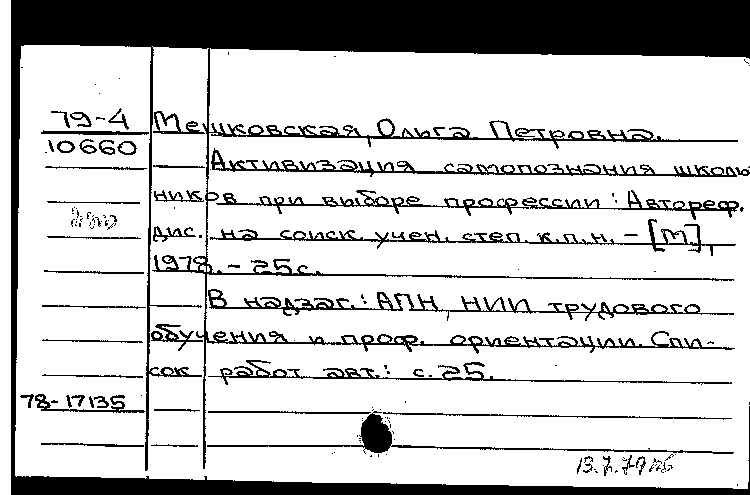 79-4 Мешковская, Ольга Петровна.
10660
Активизация самопознания школь
ников при выборе профессии : Автореф.
дис. на соиск. учен. степ. к.п.н. - [М.],
1978. - 25с.
В надзаг.: АПН, НИИ трудового
обучения и проф. ориентации. Спи-
сок работ авт.: с. 25.
78-17135
13.7.79